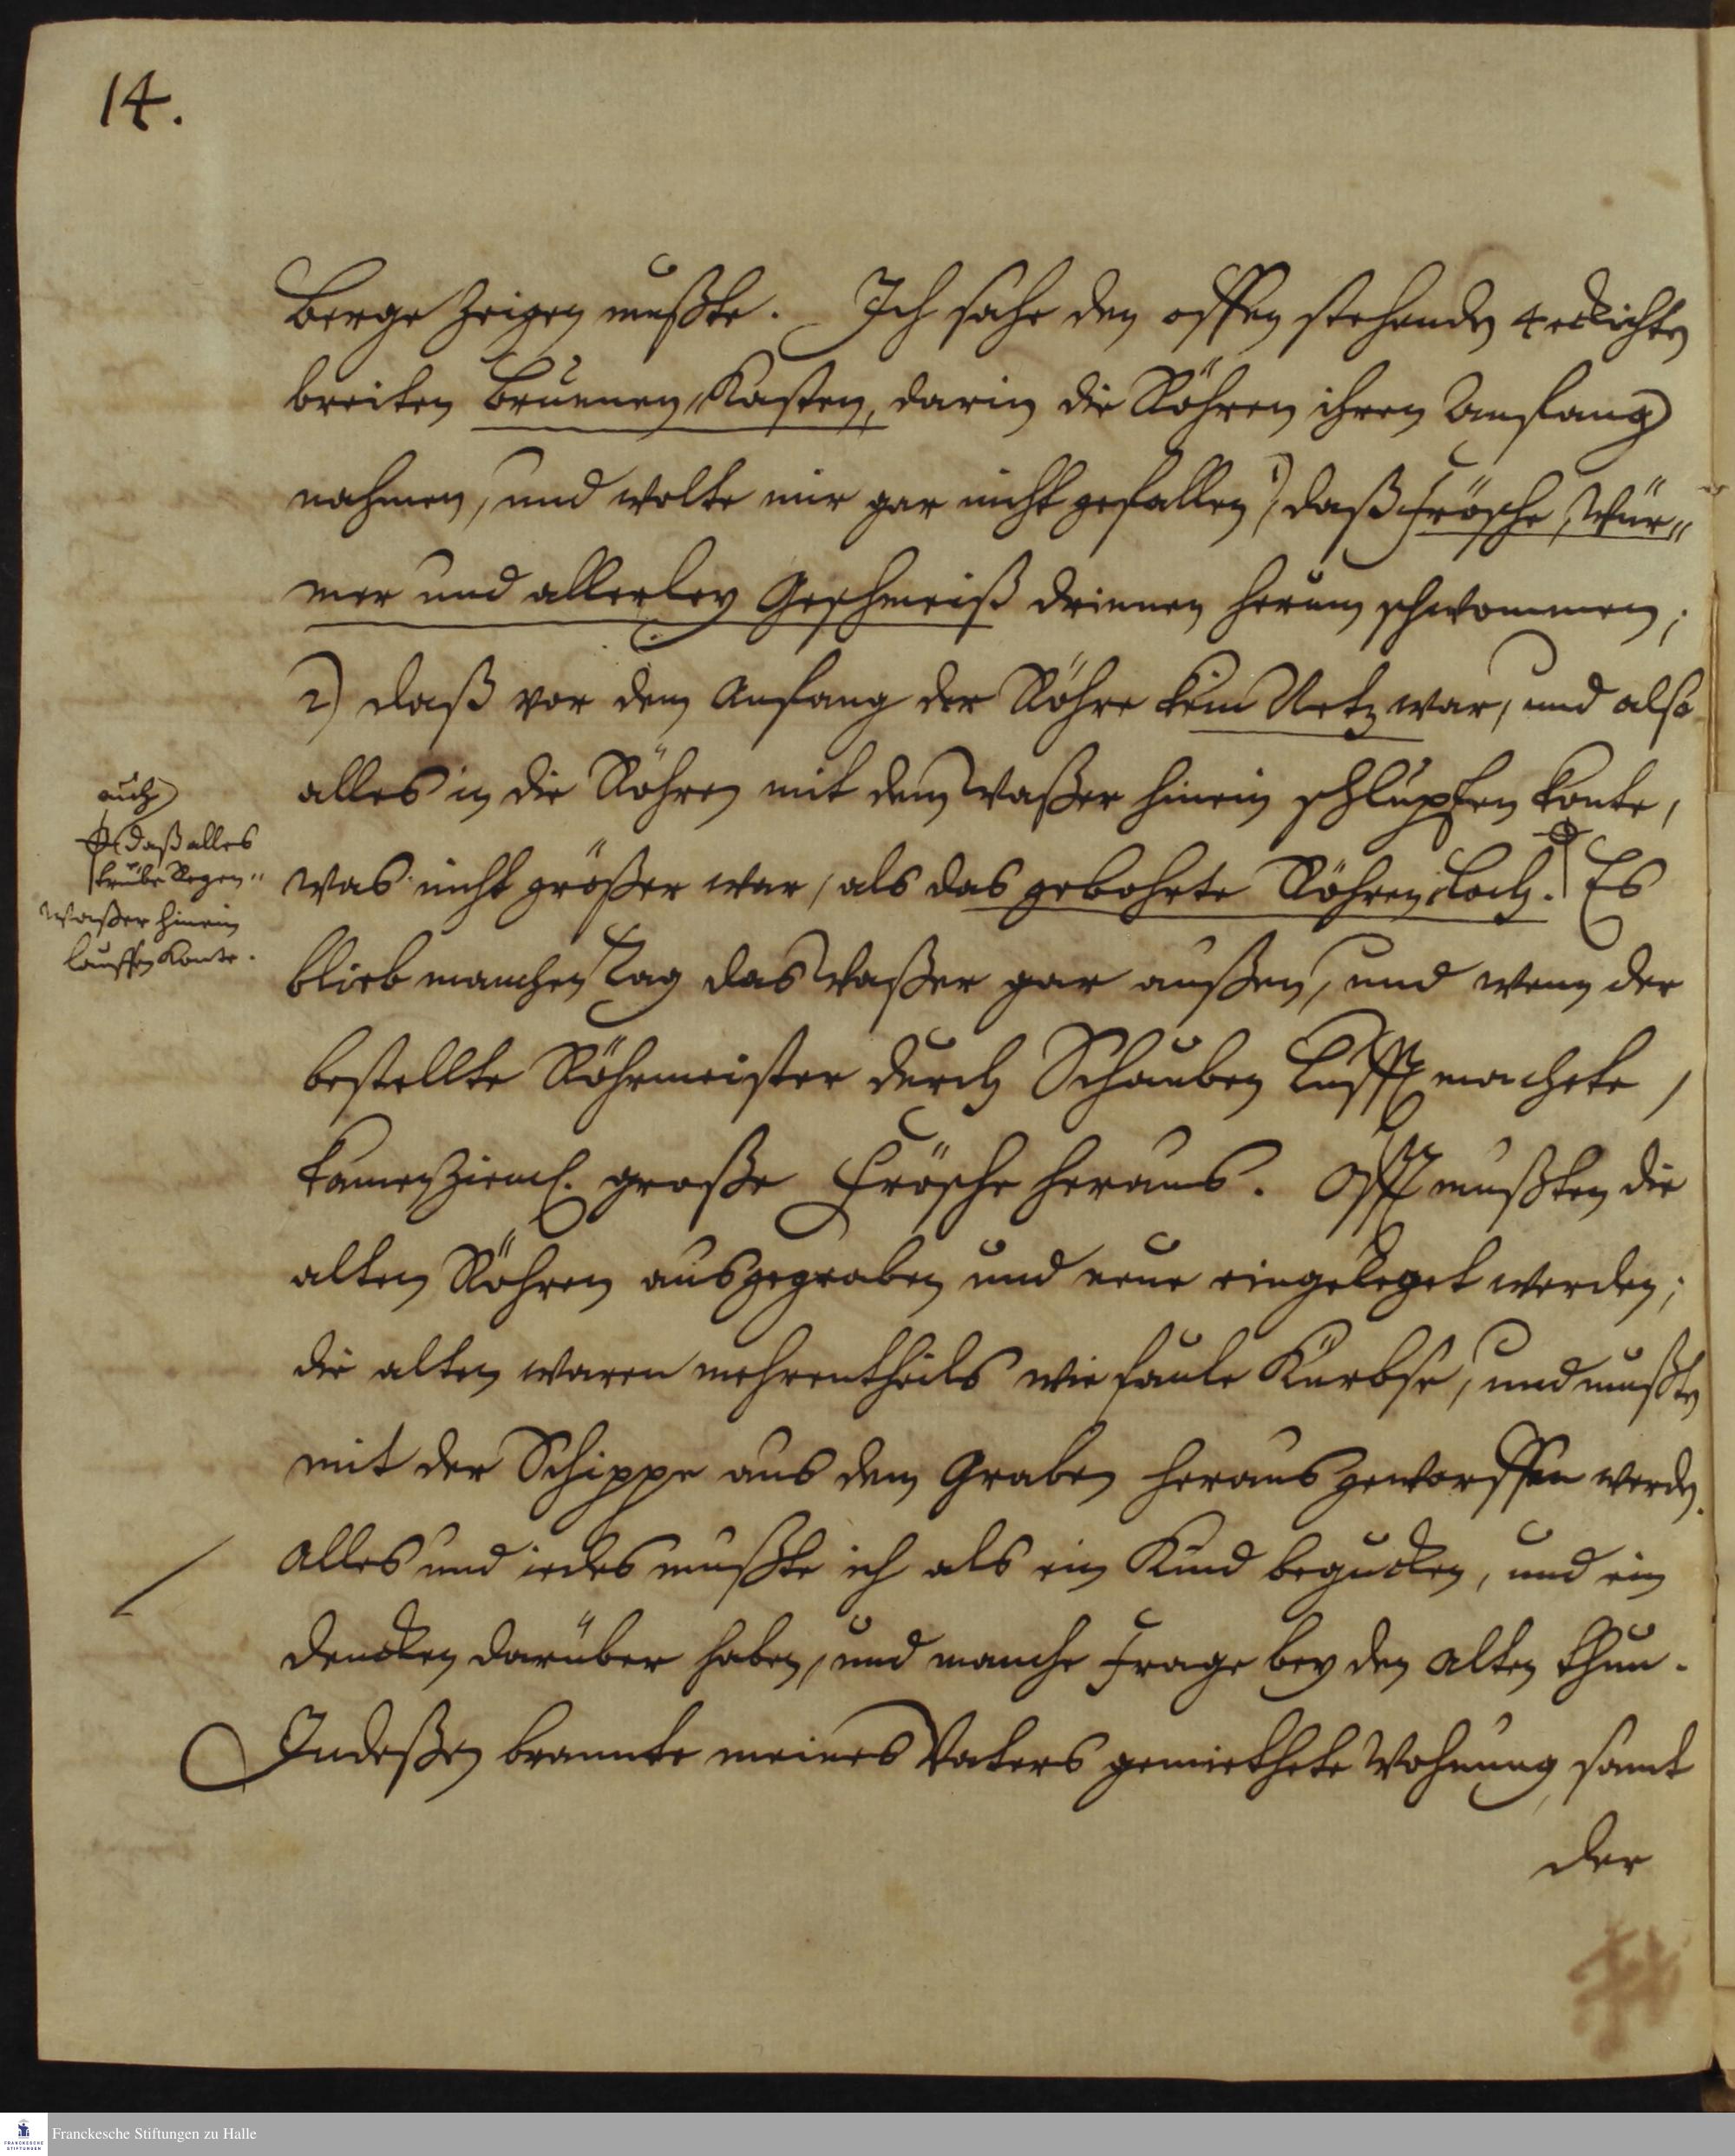 14.
Berge zeigen mußte. Ich sahe den offen stehenden 4eckichten
breiten Brunnen-Kasten, darin die Röhren ihren Anfang
nahmen, und wolte mir gar nicht gefallen 1) daß Frösche, Wür-
mer und allerley Geschmeiß drinnen herum schwommen;
2) daß vor dem Anfang der Röhre kein Netz war, und also
alles in die Röhren mit dem Waßer hinein schlupfen konte,
auch
daß alles
trübe Regen-
waßer hinein
lauffen konte.
was nicht größer war, als das gebohrte Röhren Loch. Es
blieb manchen Tag das Waßer gar außen, und wenn der
bestellte Röhrmeister durch Schauben Lufft machete,
kamen zieml. große Frösche heraus. Offt mußten die
alten Röhren ausgegraben und neue eingeleget werden;
die alten waren mehrentheils wie faule Kürbse, und mußten
mit der Schippe aus dem Graben heraus geworffen werden.
Alles und iedes mußte ich als ein Kind begucken, und ein
Dencken darüber haben, und manche Frage bey den Alten thun.
Indeßen brannte meines Vaters gemiethete Wohnung samt
der
Franckesche Stiftungen zu Halle
FRANCKESCHE
STIFTUNGEN